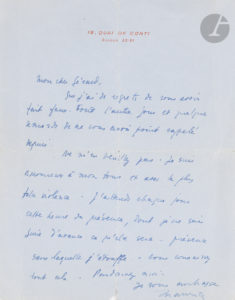 18, QUAI DE CONTI
Mon cher Gérard,
Que j'ai de regrets de vous avoir
fait faux l'autre jour et quelque
remords de ne vous avoir point rappelé
depuis.
Ne m'en veuillez pas. Je suis
amoureux à mon tour et avec la plus
folle violence. J'attends chaque jour
cette heure de présence, dont je ne suis
jamais d'avance ce qu'elle sera - présence
sans laquelle j'étouffe - vous connaissez
tout cela. Pardonnez moi.
Je vous embrasse